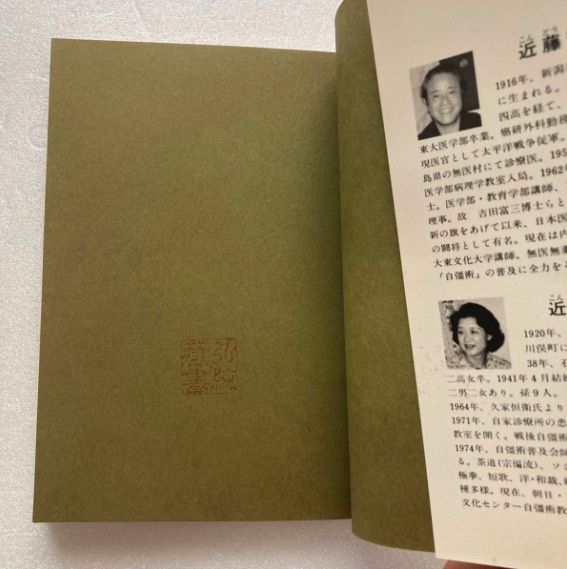 こん どう
近藤
1916年、新潟
に生まれる。
四高を経て、
東大医学部卒業。癌研外科勤務
現医官として太平洋戦争従軍。
島県の無医村にて診療医。195
医学部病理学教室入局。1962
士。医学部・教育学部講師、
理事。故 吉田富三博士らと
新の旗をあげて以来、日本医
の闘将として有名。現在は内
大東文化大学講師。無医無薬
「自彊術」の普及に全力を
こん
近
1920年、
川俣町に
38年、石
二高女卒。1941年4月結婚
二男二女あり。孫9人。
1964年、久家恒衛氏より
1971年、自家診療所の患
教室を開く。戦後自彊術
1974年、自彊術普及会師
る。茶道(宗偏流)、ソシ
極拳、短歌、洋・和裁、
種多様。現在、朝日・
文化センター自彊術教